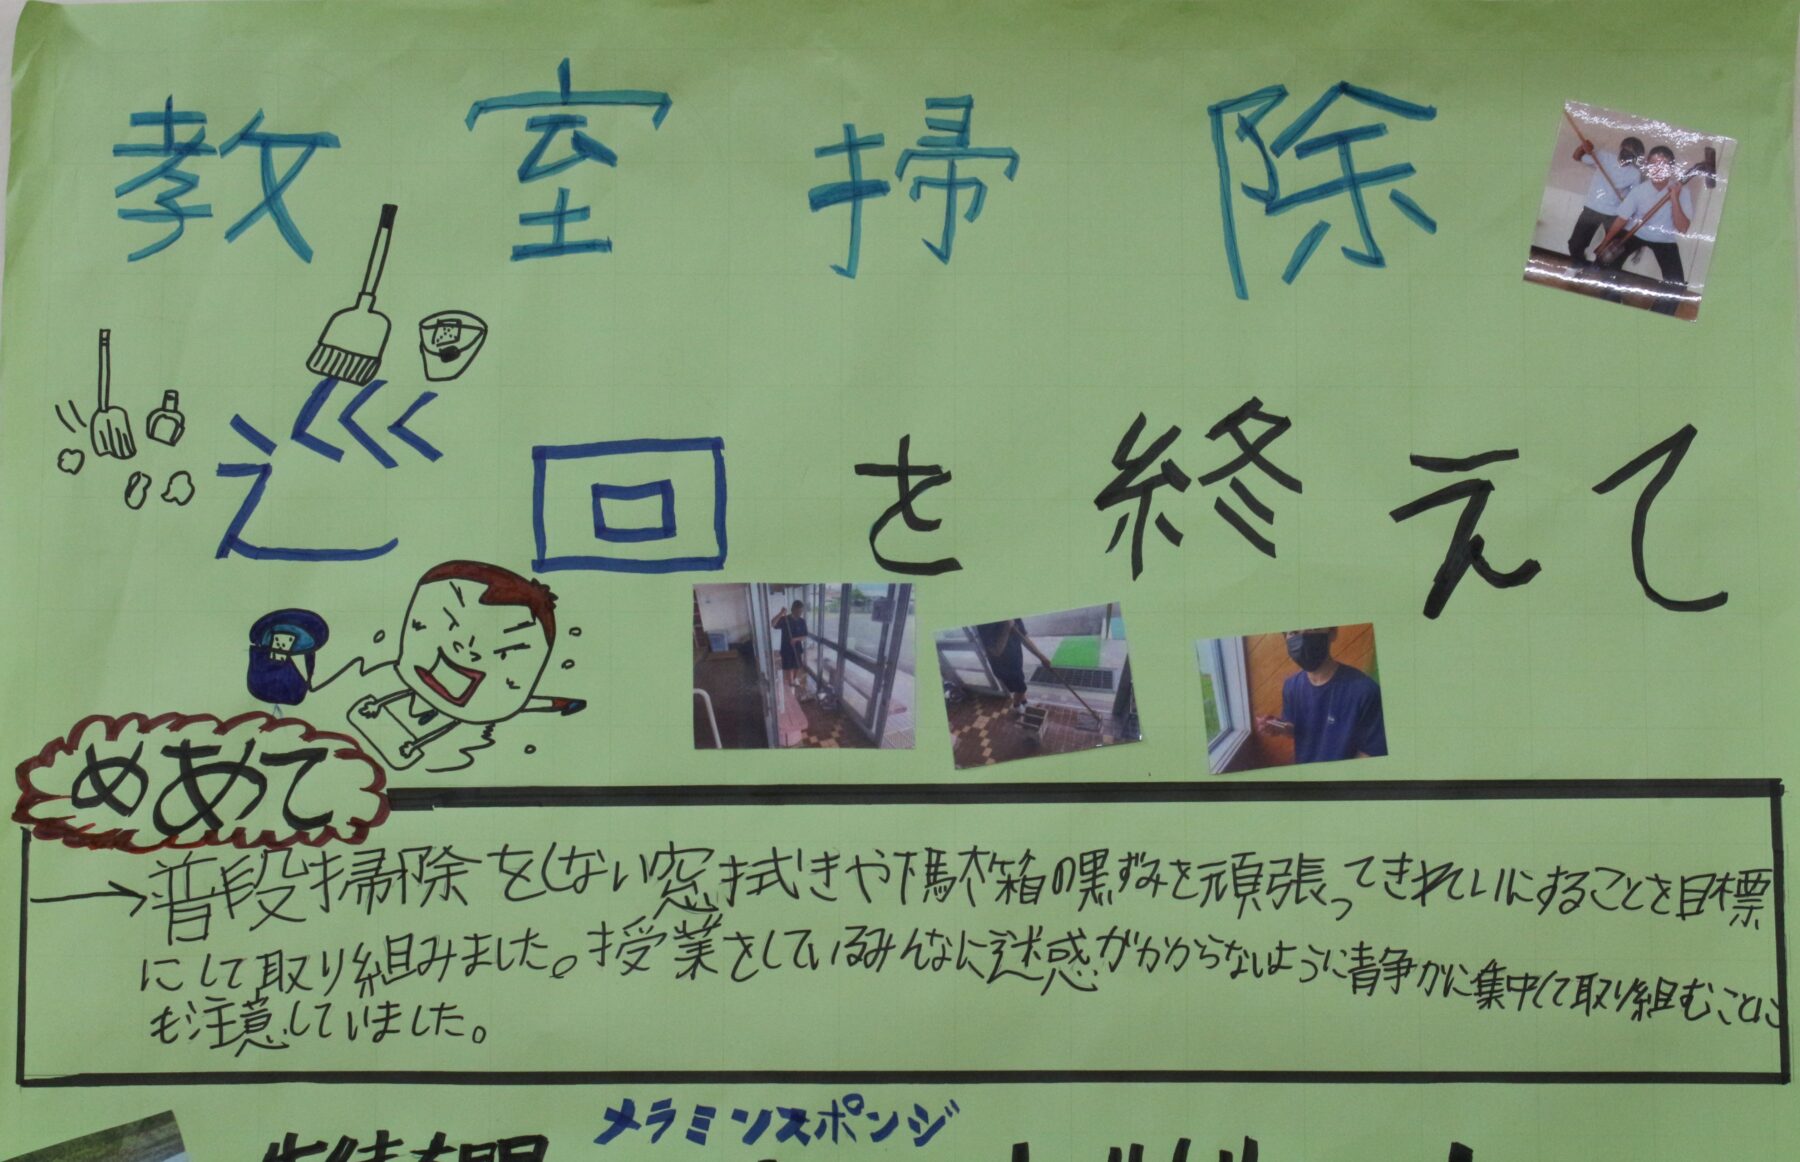 教室掃除
巡回を終えて
めあて
→普段掃除をしない窓拭きや下駄箱の黒ずみを頑張ってきれいにすることを目標
にして取り組みました。授業をしているみんなに迷惑がかからないように静かに集中して取り組むことに
も注意していました。
メラミンスポンジ